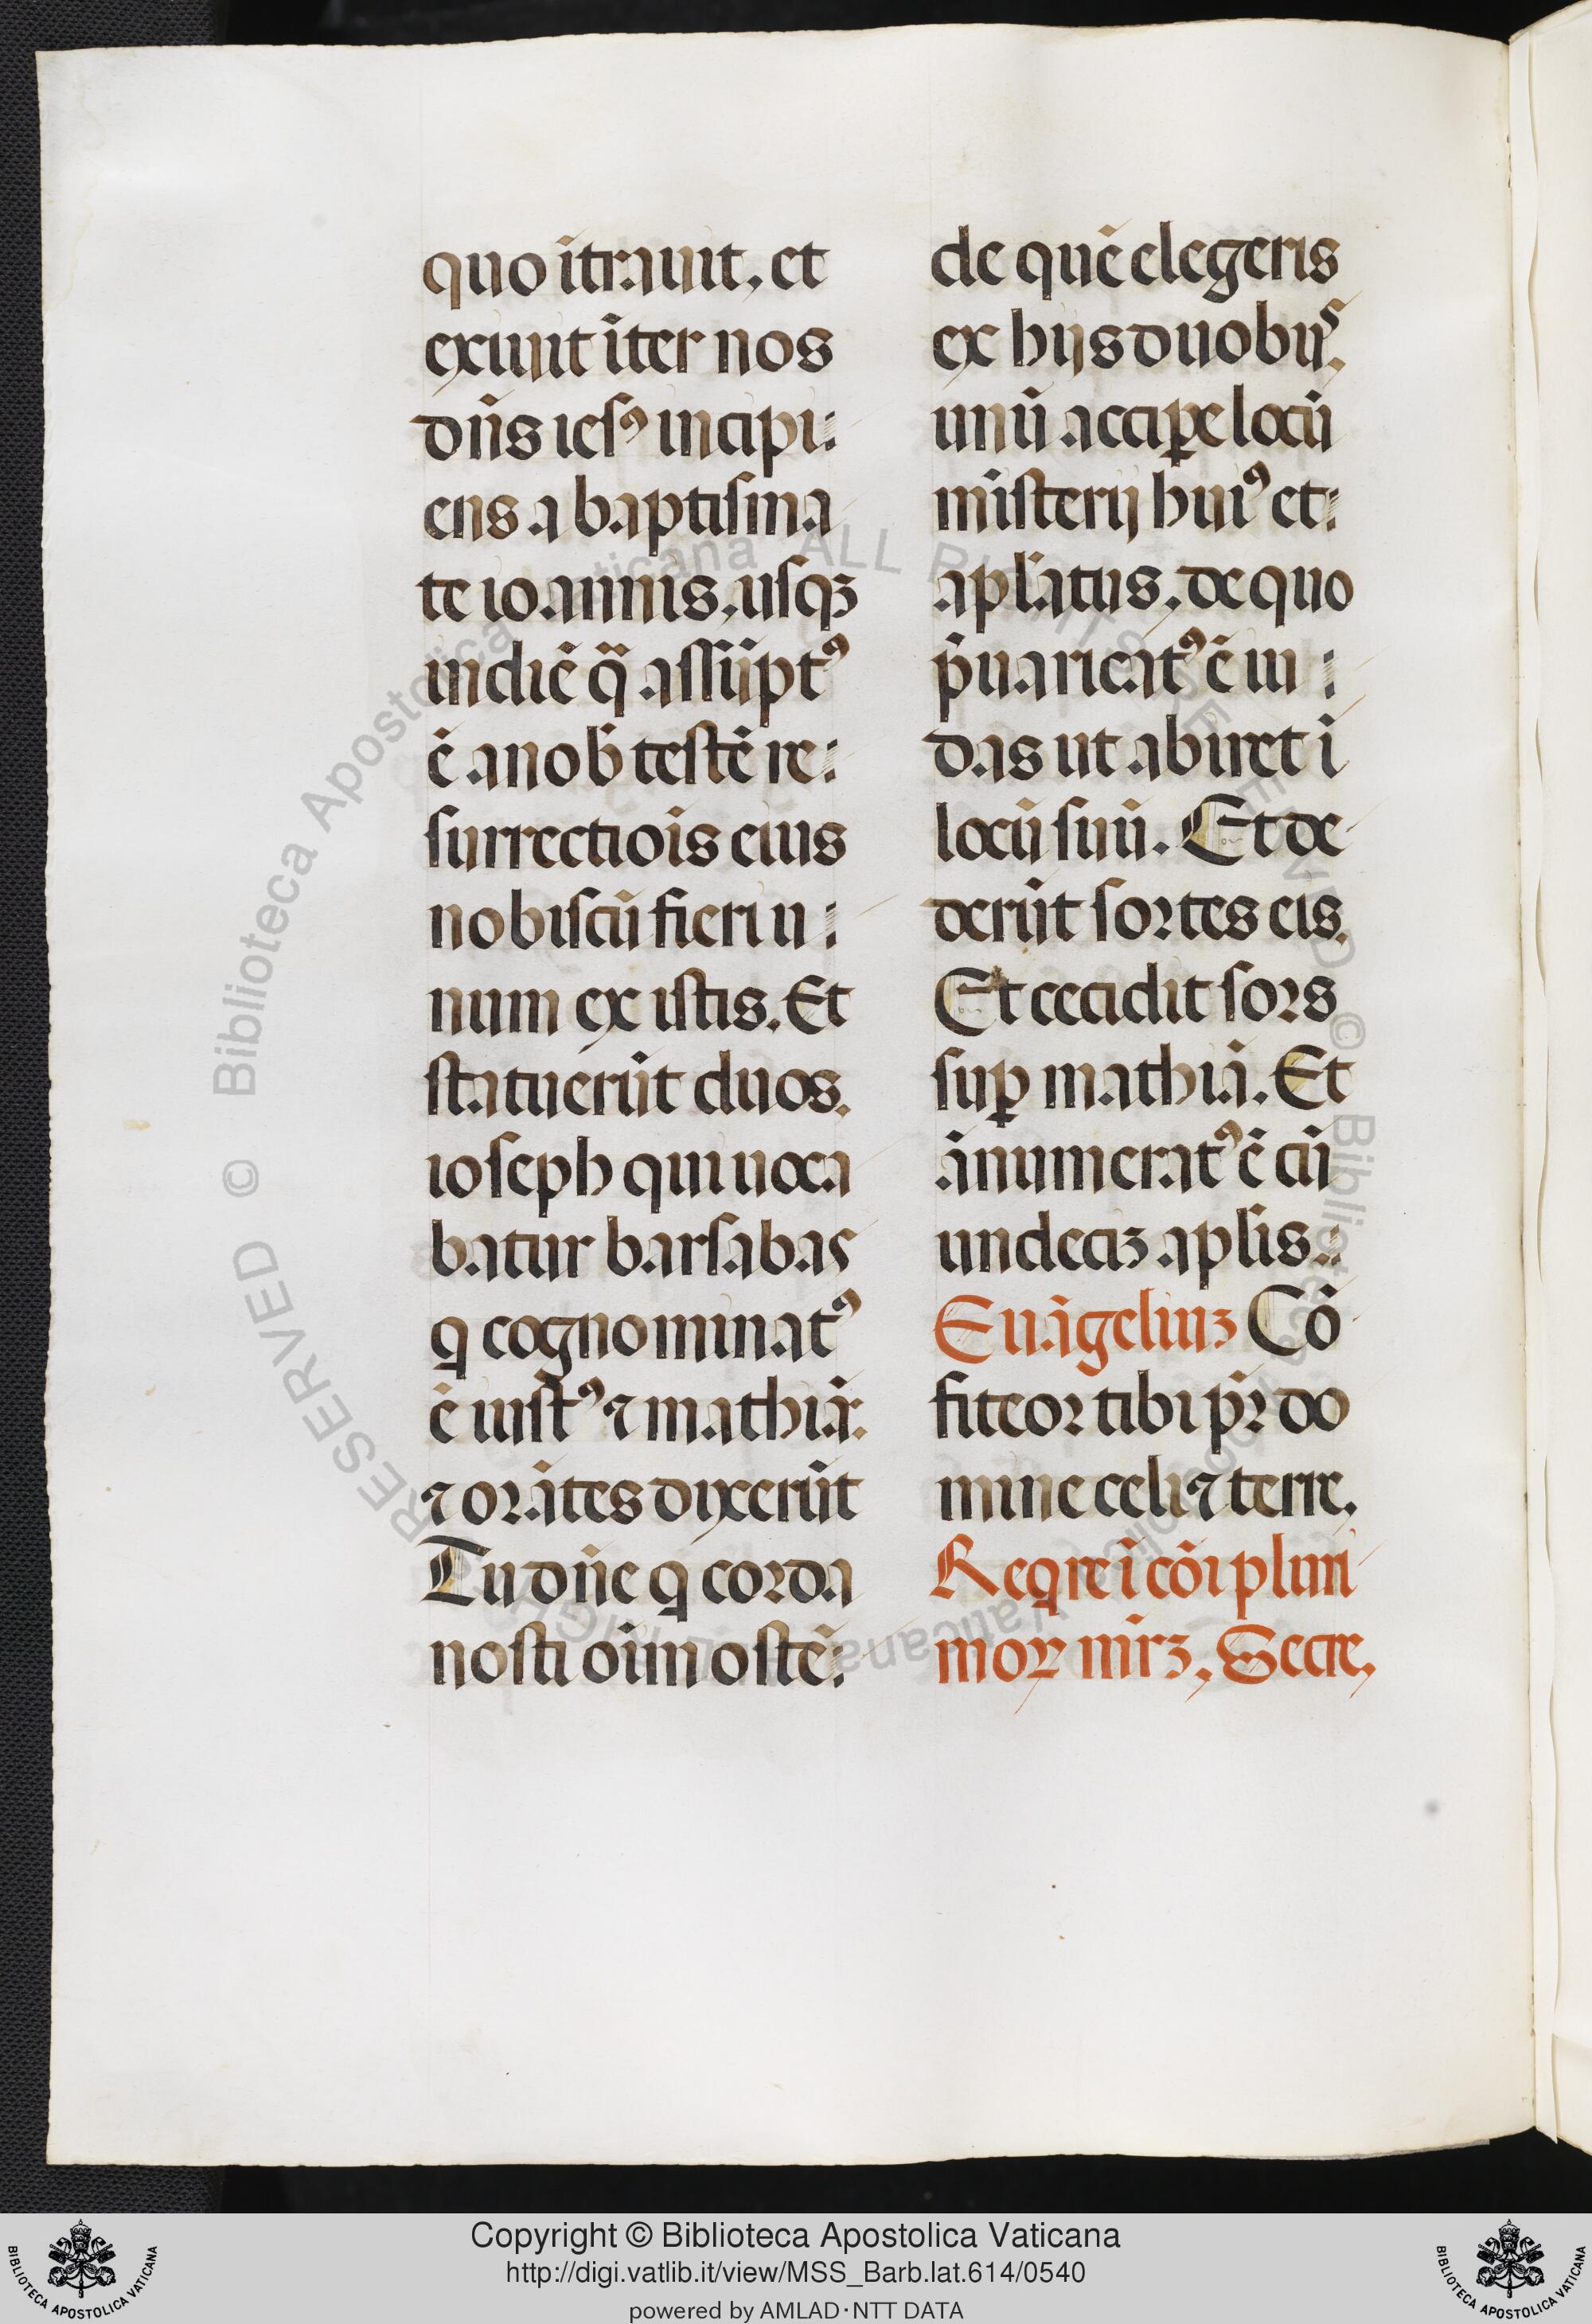 quo ītrauit, et
exiuit īter nos
dn̄s iesꝰ incipi:
ens a baptisma
te ioannis, usqꝫ
in diē q̄ assūptꝰ
ē a nob̄ testē re:
surrectiōis eius
nobiscū fieri u:
num ex istis. Et
statuerūt duos.
ioseph qui uoca
batur barsabas
q cognominatꝰ
ē iustꝰ ⁊ mathiā:
⁊ orātes dixerūt
Tu dn̄e q corda
nosti oīm ostē:
de quē elegeris
ex hijs duobus.
unū acciꝑe locū
misterij huiꝰ et:
apl̄atus, de quo
p̄uaricatꝰ ē iu:
das ut abiret ī
locū suū. Et de
derūt sortes eis.
Et cecidit sors
suꝑ mathiā. Et
ānumeratꝰ ē cū
undeciꝫ apl̄is.
Euāgeliuꝫ Cō
fiteor tibi pr̄ do
mine celi ⁊ terre.
Reqre ī cōi pluri
moꝝ mr̄ꝫ, Secre,
© Biblioteca Apostolica Vaticana ALL RIGHTS RESERVED © Biblioteca Apostolica Vaticana ALL RIGHTS RESERVED
Copyright © Biblioteca Apostolica Vaticana
http://digi.vatlib.it/view/MSS_Barb.lat.614/0540
powered by AMLAD·NTT DATA
BIBLIOTECA APOSTOLICA VATICANA
BIBLIOTECA APOSTOLICA VATICANA